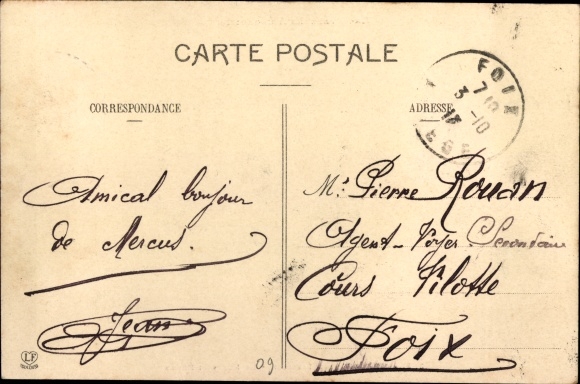 CARTE POSTALE
CORRESPONDANCE
Amical bonjour
de Mercus.
Jean
ADRESSE
Mr Pierre Rouan
Agent-Voyer Secondaire
Cours Vilotte
Foix
FOIX
3-10
13
LF
09